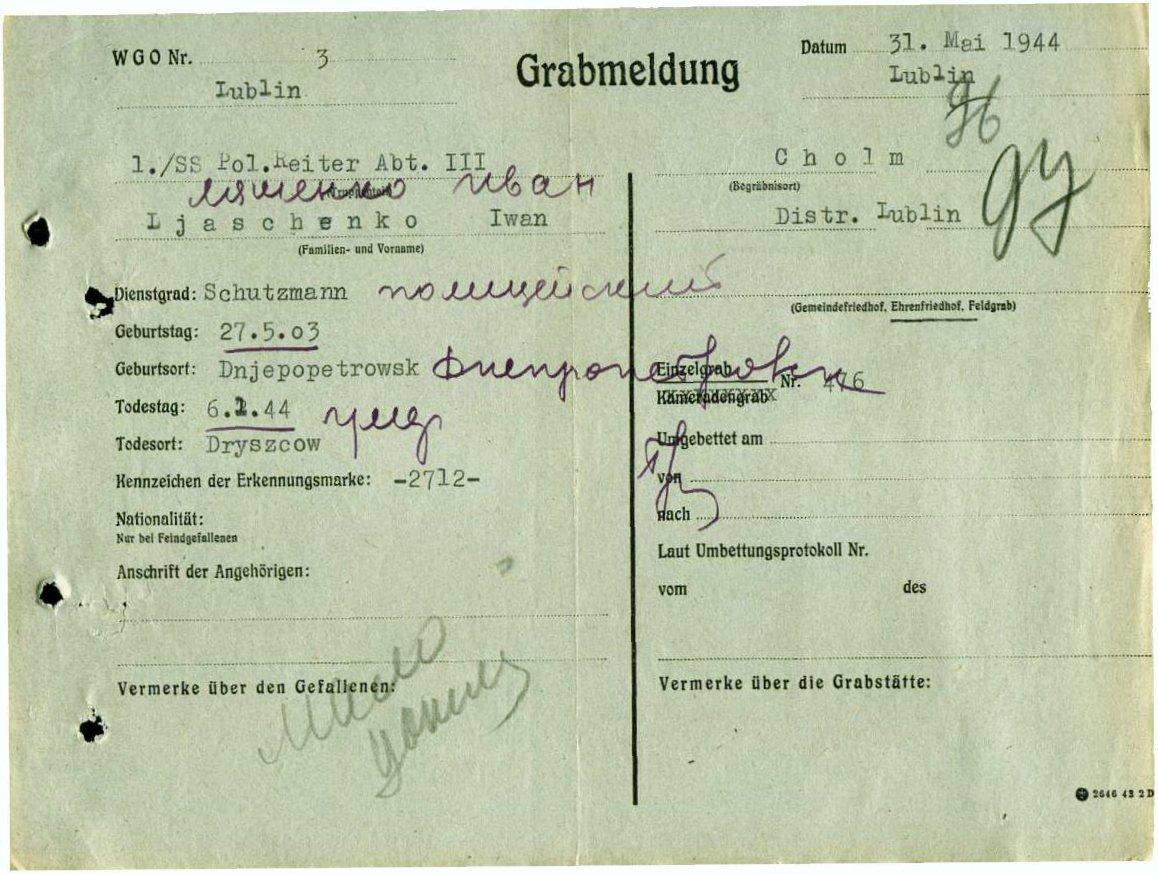 WGO Nr. 3
Lublin
Grabmeldung
Datum 31. Mai 1944
Lublin
1./SS Pol.Reiter Abt. III
Ляшенко Иван
Ljaschenko Iwan
(Familien- und Vorname)
Dienstgrad: Schutzmann полицейский
Geburtstag: 27.5.03
Geburtsort: Dnjepopetrowsk Днепропетровск
Todestag: 6.1.44
Todesort: Dryszcow
Kennzeichen der Erkennungsmarke: -2712-
Nationalität:
Nur bei Feindgefallenen
Anschrift der Angehörigen:
Vermerke über den Gefallenen:
Cholm
(Begräbnisort)
Distr. Lublin
(Gemeindefriedhof, Ehrenfriedhof, Feldgrab)
Einzelgrab Nr. 476
Kameradengrab
Umgebettet am
von
nach
Laut Umbettungsprotokoll Nr.
vom des
Vermerke über die Grabstätte:
2646 43 2 D